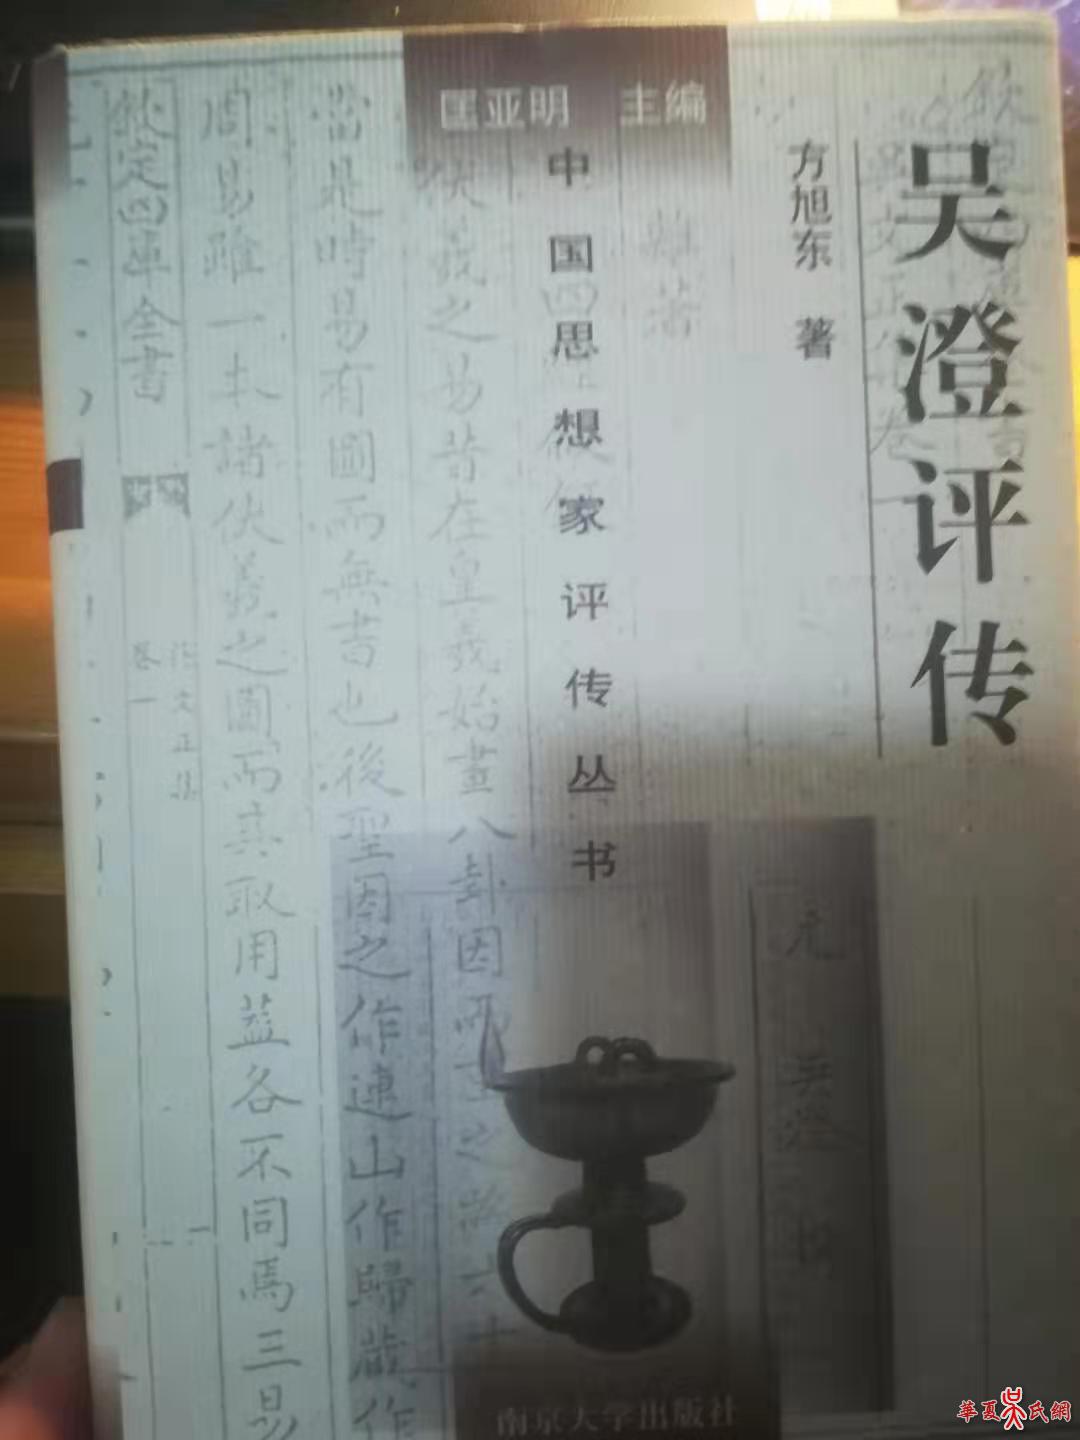 吴澄评传
方旭东 著
匡亚明 主编
中国思想家评传丛书
雜著
伏羲之易昔在皇羲始畫八卦因而重之為六十
當是時易有圖而無書也後聖因之作連山作歸藏作
周易雖一本諸伏羲之圖而其取用葢各不同焉三易
欽定四庫全書
卷一
元 吳澄 撰
南京大学出版社
華夏吴氏網